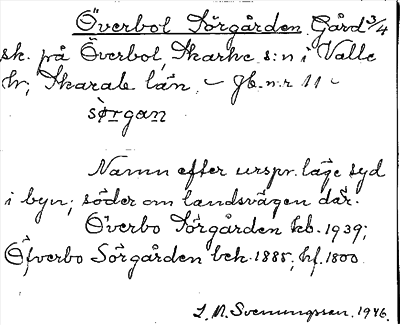 Överbol Sörgården Gård 3/4
sk. på Överbol, Skarke s:n i Valle
hr, Skarab. län. – Jb. n:r 11 –
sörgan
Namn efter urspr. läge syd
i byn; söder om landsvägen där.
Överbo Sörgården kb. 1939;
Öfverbo Sörgården bek. 1885, hf. 1800.
L. M. Svenungsson. 1946.